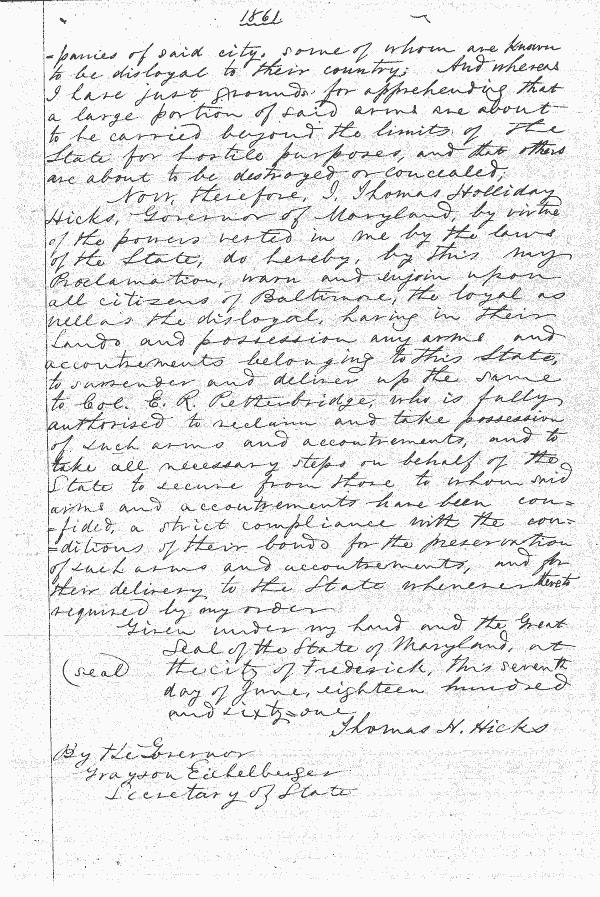 1861
-panies of said city, some of whom are known
to be disloyal to their country; And whereas
I have just grounds for apprehending that
a large portion of said arms are about
to be carried beyond the limits of the
State for hostile purposes, and that others
are about to be destroyed or concealed,
Now, therefore, I, Thomas Holliday
Hicks, Governor of Maryland, by virtue
of the powers vested in me by the laws
of the State, do hereby, by this my
Proclamation, warn and enjoin upon
all citizens of Baltimore, the loyal as
well as the disloyal, having in their
hands and possession any arms and
accoutrements belonging to this State,
to surrender and deliver up the same
to Col. E. R. Petherbridge, who is fully
authorised to reclaim and take possession
of such arms and accoutrements, and to
take all necessary steps on behalf of the
State to secure from those to whom said
arms and accoutrements have been con=
=fided, a strict compliance with the con=
=ditions of their bonds for the preservation
of such arms and accoutrements, and for
their delivery to the State whenever thereto
required by my order
Given under my hand and the Great
Seal of the State of Maryland, at
(seal) the city of Frederick, this seventh
day of June, eighteen hundred
and sixty=one
Thomas H. Hicks
By the Governor
Grayson Eichelberger
Secretary of State